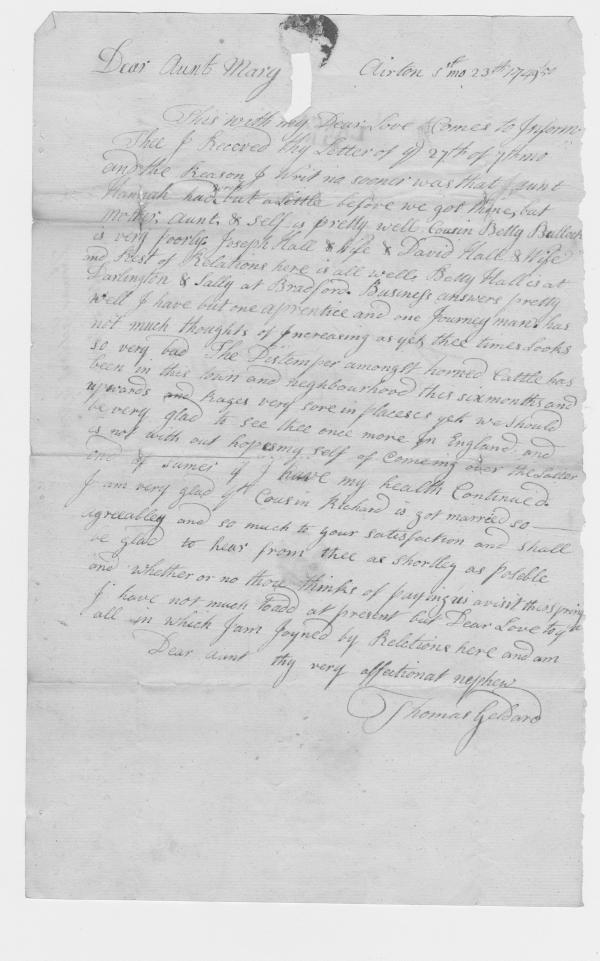 Dear Aunt Mary Airton 1st mo 23th 1749/50
This with my Dear Love Comes to Inform
Thee I Receved thy Letter of ye 27th of 7th mo
and the Reason I writ no sooner was that Aunt
Hannah had writ but a Little before we got thine, but
mother, Aunt, & Self is pretty well Cousin Betty Bullock
is very poorly. Joseph Hall & Wife & David Hall & Wife
and Rest of Relations here is all well. Betty Hall is at
Darlington & Sally at Bradford. Business answers pretty
well I have but one aprentice and one Journey man. has
not much thoughts of Increasing as yet, thee times Looks
so very bad The Distemper amongst horned Cattle has
been in this town and neighbourhood this six months and
upwards and Rages very sore in placeses yet we should
be very glad to see thee once more in England and
is not with out hopes my self of Comeing over the Latter
end of sumer if I have my health Continued.
I am very glad yt Cousin Richard is got married so
agreeabley and so much to your satisfaction and shall
be glad to hear from thee as shortley as posible
and whether or no thou thinks of paying us a visit this spring
I have not much to add at present but Dear Love to you
all in which I am Joyned by Relations here and am
Dear Aunt thy very affectionat nephew
Thomas Geldard